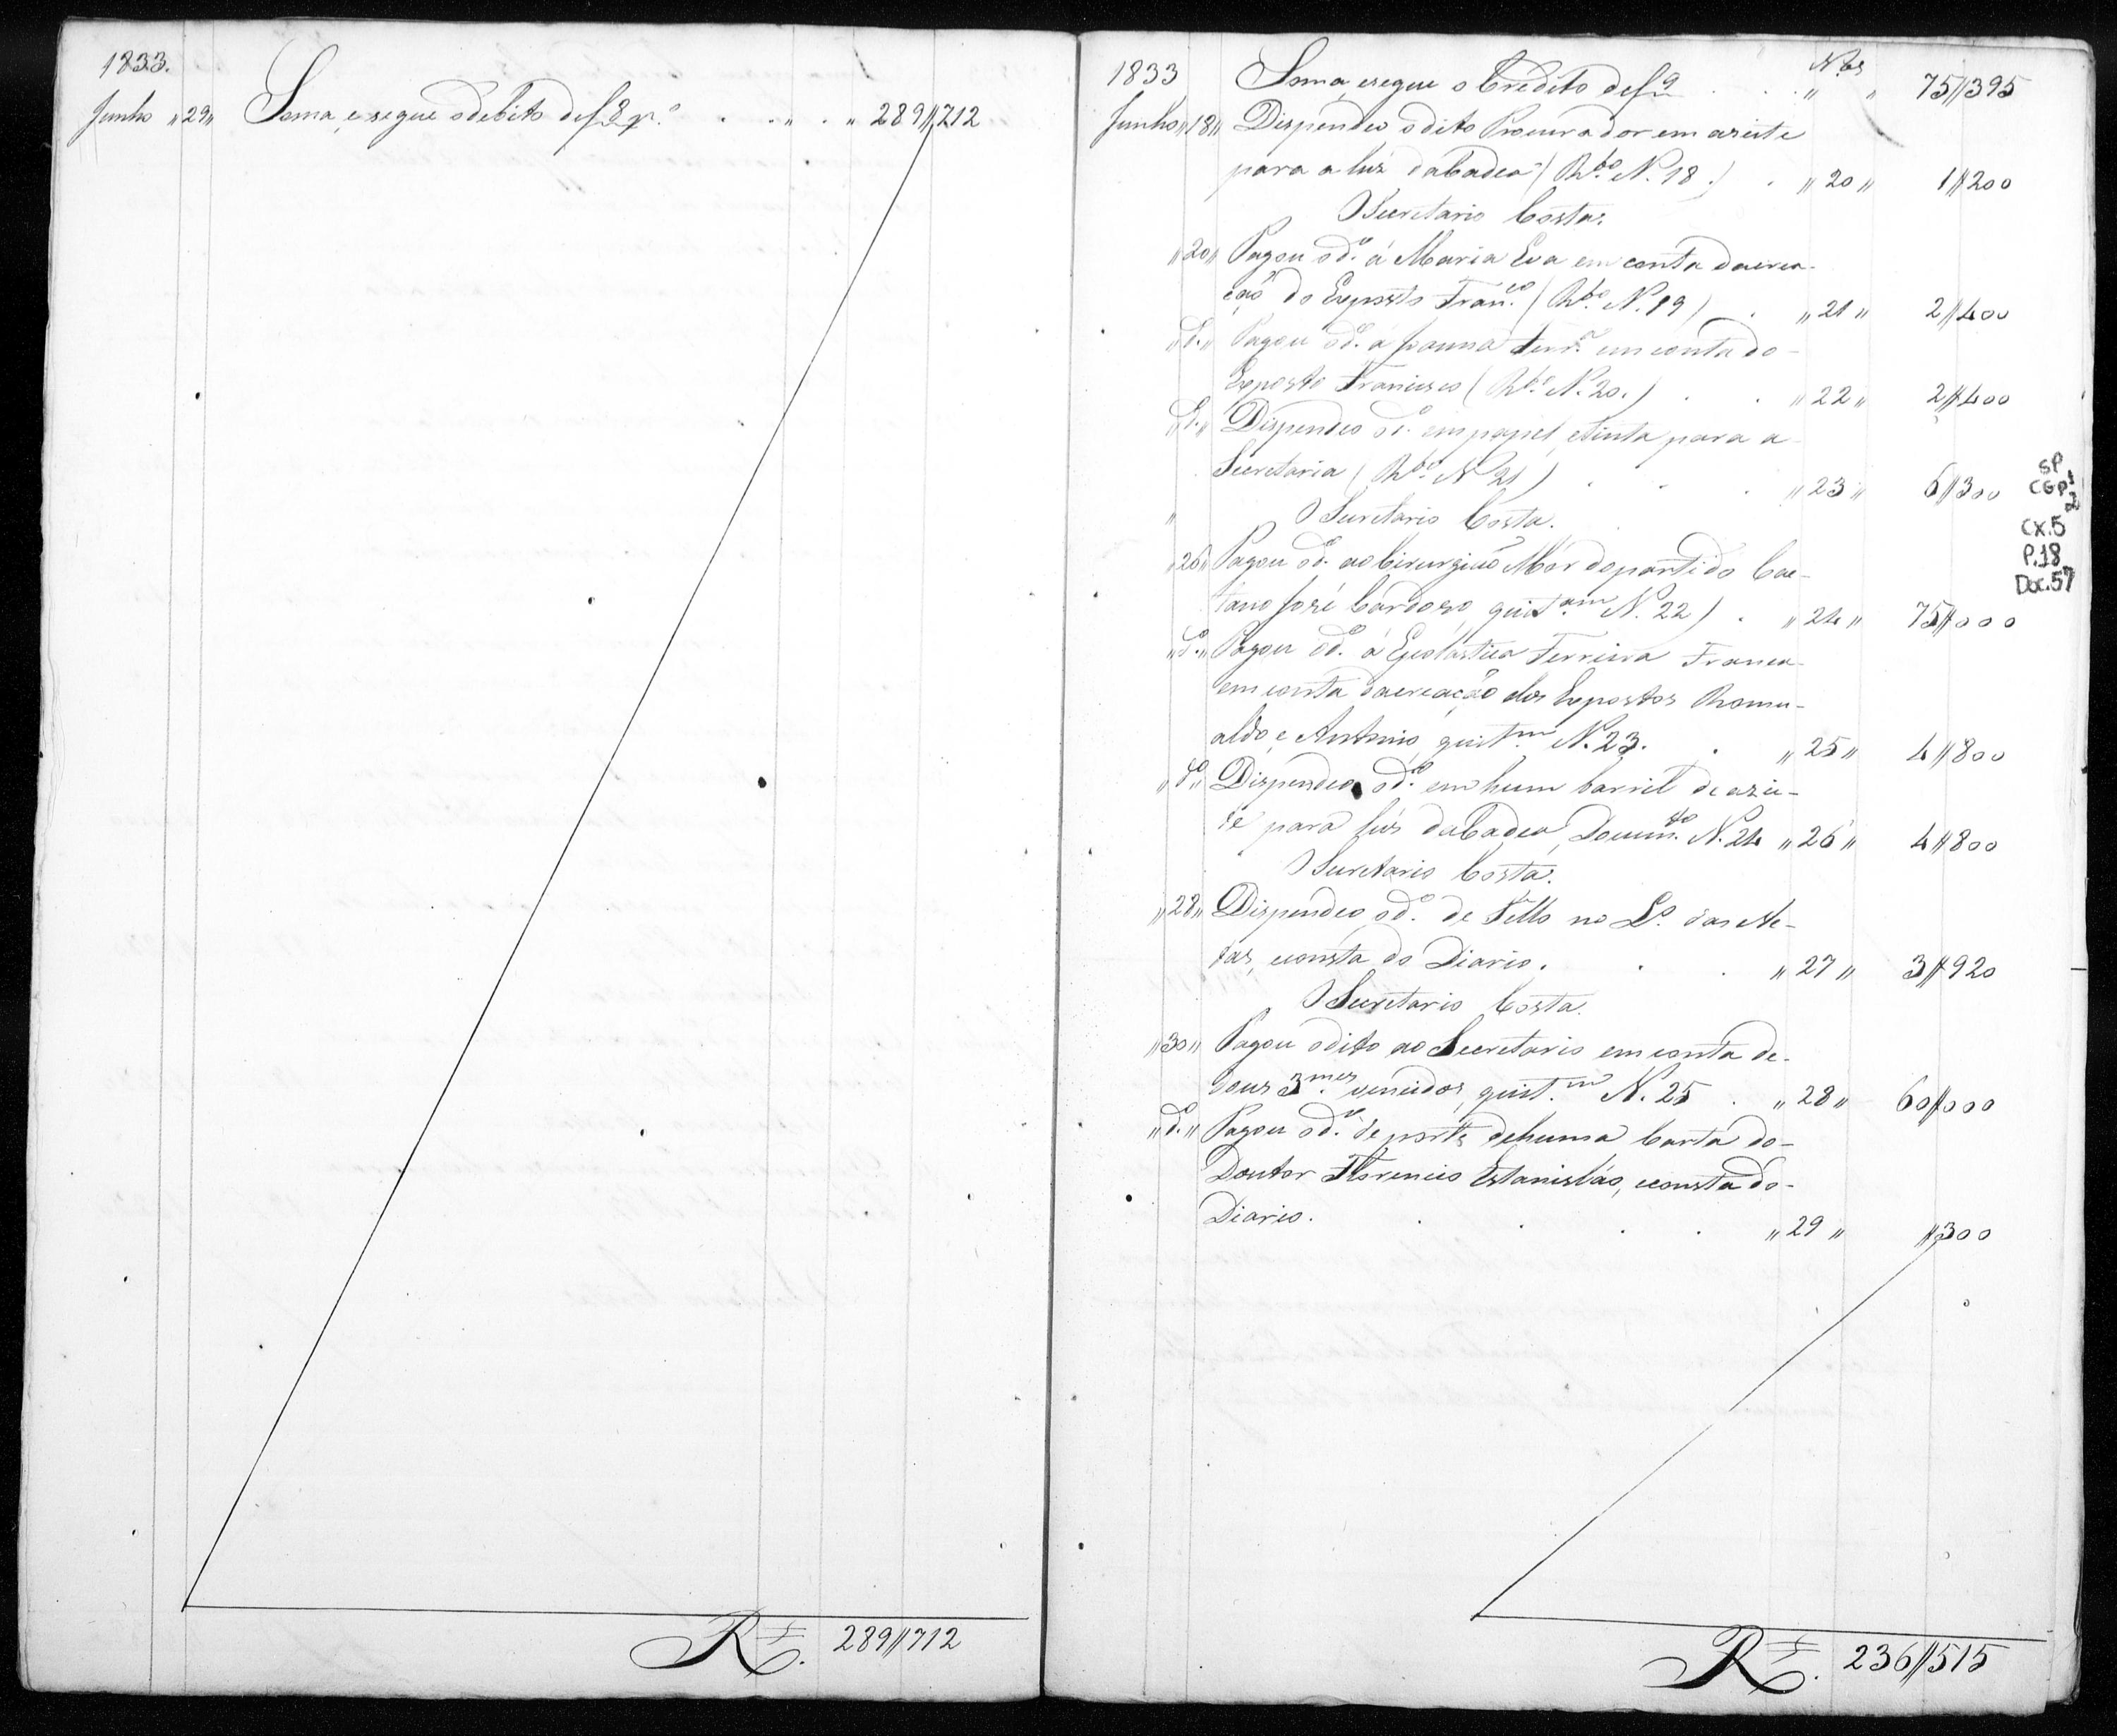 1833.
Junho "29" Soma, e segue o debito de f 8 p.ª . . " . " 289//712
R.s 289//712
1833 Soma, e segue o Credito de f 9 . . N.os " " 75//395
Junho "18" Dispendeo o dito Procurador em azeite
para a luz da Cadea (R.bo N. 18.) . "20" 1//200
O Secretario Costa.
"20" Pagou o d.º á Maria Eva em conta da crea-
ção do Exposto Fran.co (R.bo N. 19) . "21" 2//400
"d.º" Pagou o d.º á Joanna Ferr.ª em conta do
Exposto Francisco (R.bo N. 20.) . . "22" 2//400
"d.º" Dispendeo o d.º em papel, e tinta para a
Secretaria (R.bo N 21) . . . "23" 6//300
O Secretario Costa.
"26" Pagou o d.º ao Cirurgião Mór do partido Cae-
tano José Cardozo, quit.am N. 22) . "24" 75//000
"d.º" Pagou o d.º á Escolastica Ferreira Franca
em conta da creação dos Expostos Romu-
aldo, e Antonio, quit.m N. 23. . "25" 4//800
"d.º" Dispendeo o d.º em hum barril de azei-
te para luz da Cadea, Docum.to N. 24 "26" 4//800
O Secretario Costa.
"28" Dispendeo o d.º de Sello no L.º das Ac-
tas, consta do Diario. . . "27" 3//920
O Secretario Costa.
"30" Pagou o dito ao Secretario em conta de
dous 3.mes vencidos, quit.m N. 25 . "28" 60//000
"d.º" Pagou o d.º de porte de huma Carta do
Doutor Florencio Estanisláo, consta do
Diario. . . . . "29" //300
R.s 236//515
SP
CGP1
2
CX.5
P.18
Doc.57